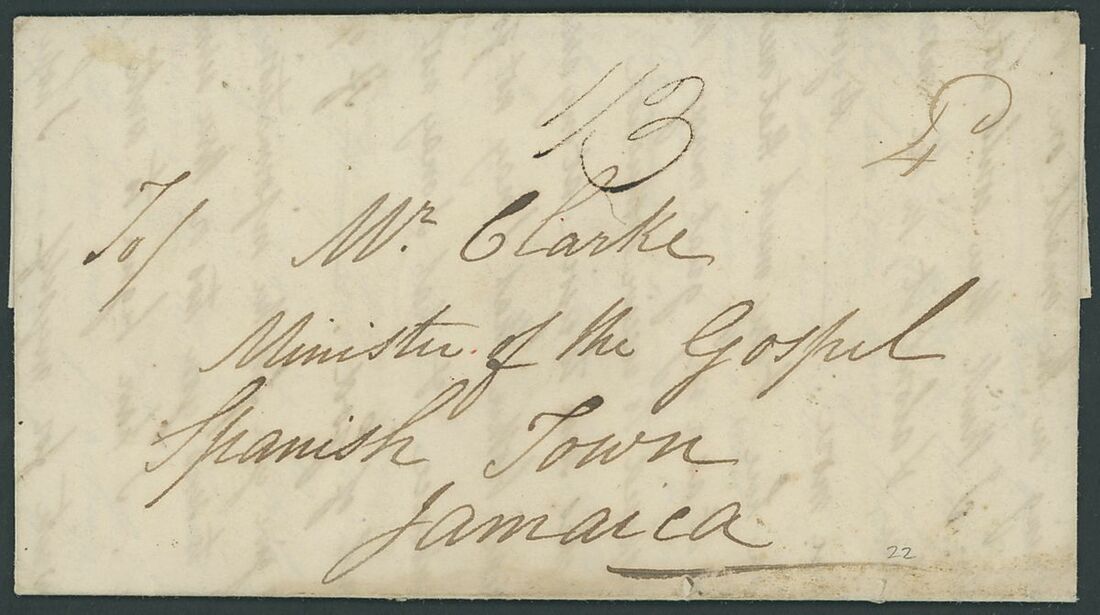 1/3
4d
To/ Mr. Clarke
Minister of the Gospel
Spanish Town
Jamaica
22